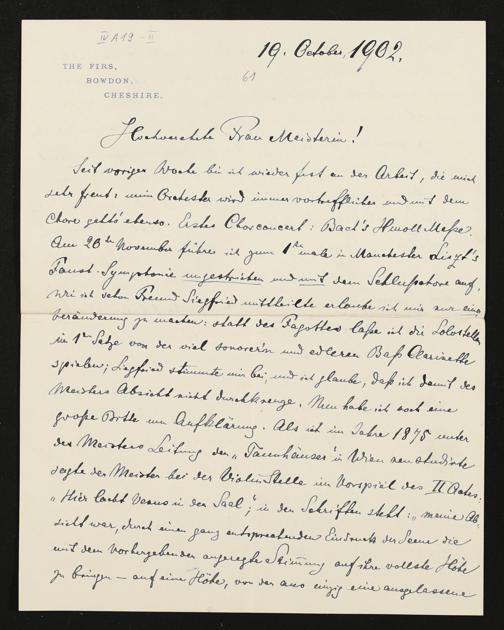 IV A 19 - II
19. October, 1902.
61
THE FIRS,
BOWDON,
CHESHIRE.
Hochverehrte Frau Meisterin!
Seit voriger Woche bin ich wieder fest an der Arbeit, die mich
sehr freut; mein Orchester wird immer vortrefflicher und mit dem
Chore geht's ebenso. Erstes Chorconcert: Bach's Hmoll Messe.
Am 20ten November führe ich zum 1ten male in Manchester Liszt's
Faust-Symphonie ungestrichen und mit dem Schlußchore auf.
Wie ich schon Freund Siegfried mittheilte erlaube ich mir nur eine
Veränderung zu machen: statt des Fagottes laße ich die Solostellen
im 1en Satze von der viel sonorer'n und edleren Baß Clarinette
spielen; Siegfried stimmte mir bei, und ich glaube, daß ich damit des
Meisters Absicht nicht durchkreuze. Nun habe ich noch eine
große Bitte um Aufklärung. Als ich im Jahre 1875 unter
des Meisters Leitung den "Tannhäuser" in Wien neu studirte
sagte der Meister bei der Violin Stelle im Vorspiel des II Actes:
"Hier lacht Venus in den Saal"; in den Schriften steht: "meine Ab-
sicht war, durch einen ganz entsprechenden Eindruck der Scene die
mit dem Vorhergehenden angeregte Stimmung auf ihre vollste Höhe
zu bringen — auf eine Höhe, von der aus einzig eine ausgelassene